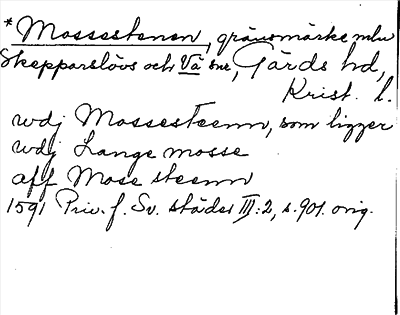 * Mossestenen, gränsmärke mln
Skepparslövs och Vä snr, Gärds hd,
Krist. l.
wdj Mossesteenn, som ligger
wdj Lange mosse
aff Mose steenn
1591 Priv. f. Sv. städer III:2, s. 901. orig.